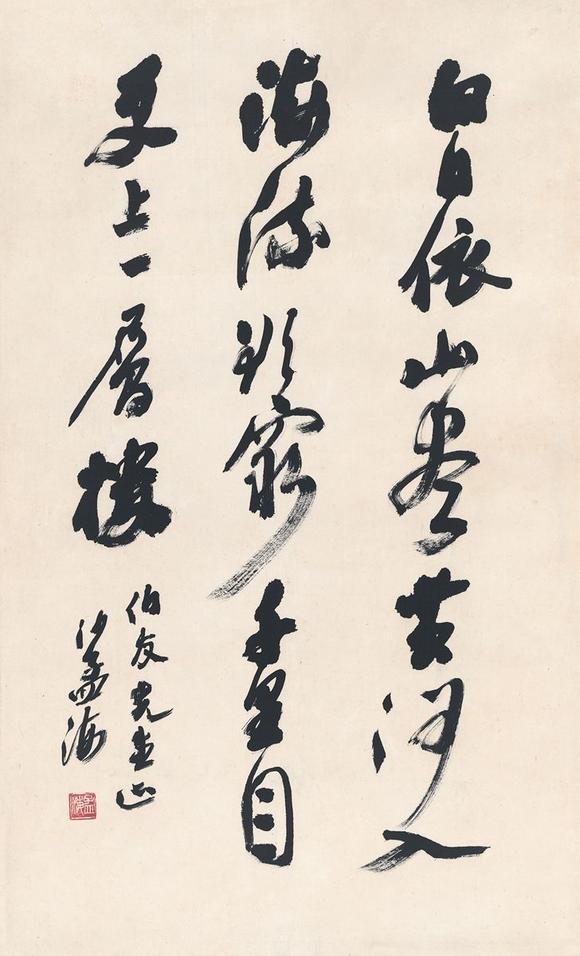 白日依山盡黄河入
海流欲窮千里目
更上一層樓
伯友先生正
沙孟海
孟海